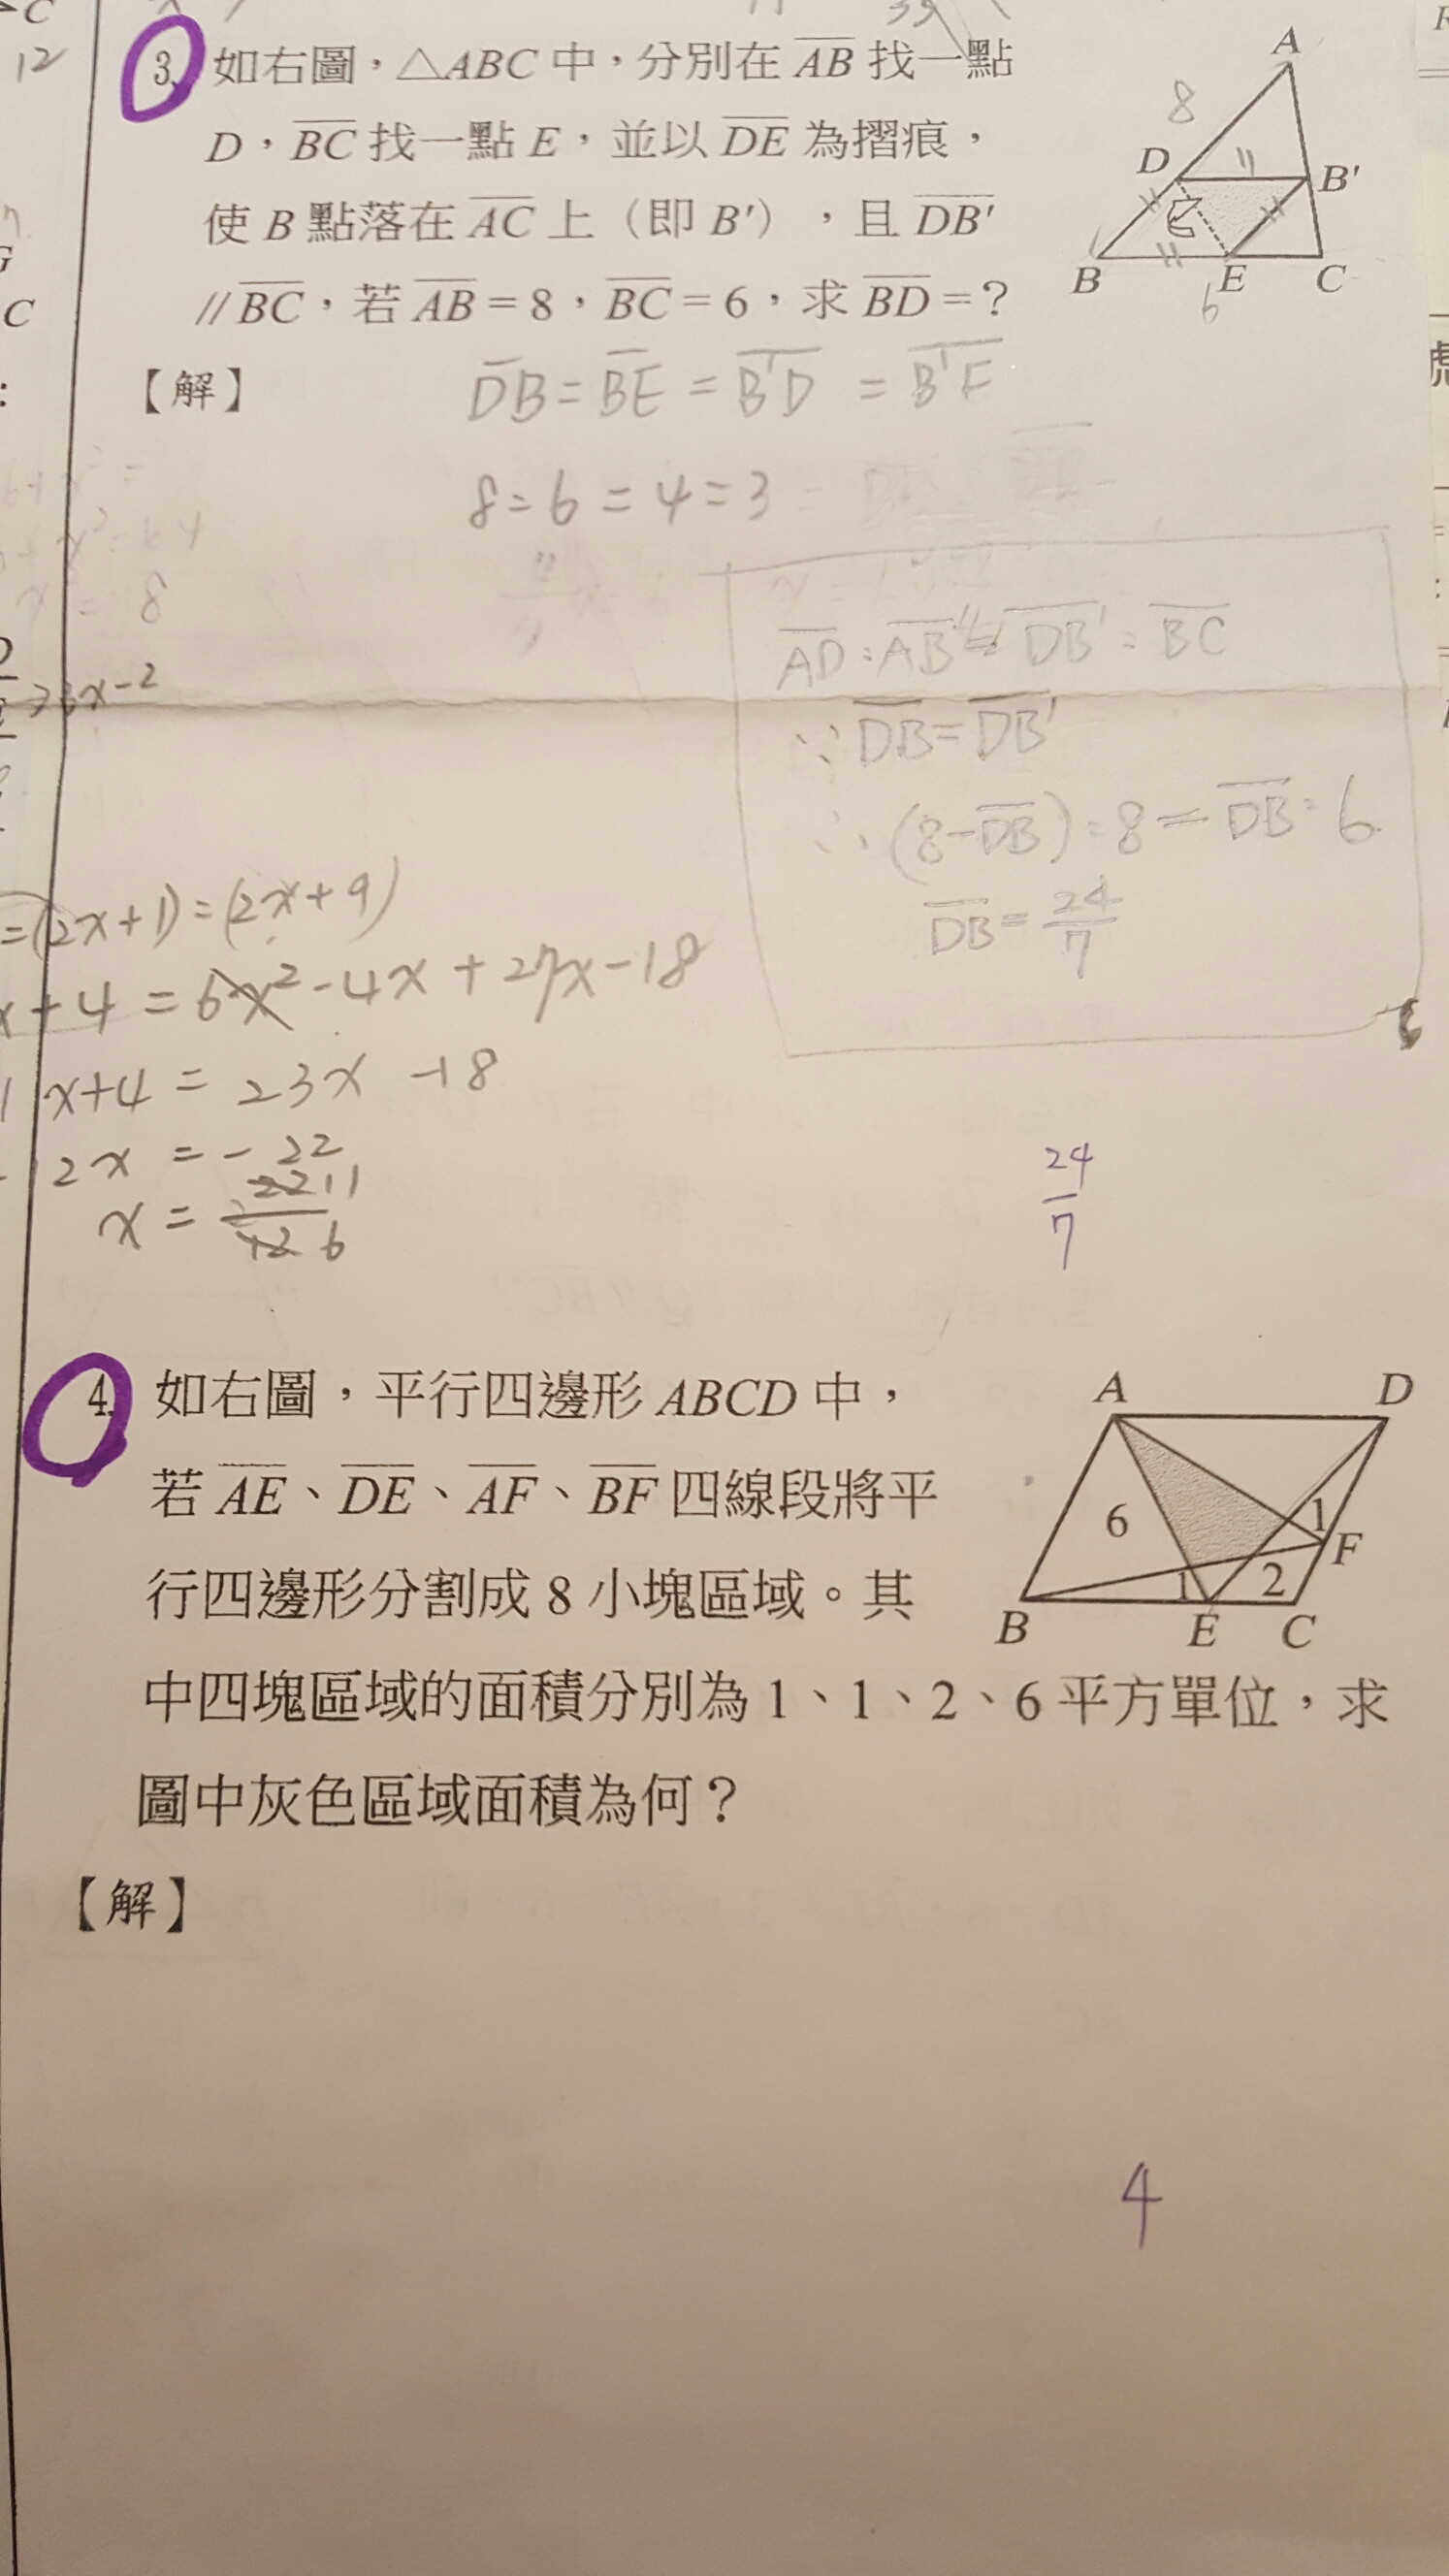 3. 如右圖，△ABC 中，分別在 AB 找一點
D，BC 找一點 E，並以 DE 為摺痕，
使 B 點落在 AC 上（即 B′），且 DB′
// BC，若 AB = 8，BC = 6，求 BD = ？
A
8
D
B′
B
E
C
6
【解】
DB = BE = B'D = B'E
8 = 6 = 4 = 3
AD : AB = DB' : BC
∵ DB = DB'
∴ (8-DB) : 8 = DB : 6
DB = 24/7
12
C
C
x = 8
3x-2
=(2x+1)=(2x+9)
x+4 = 6x²-4x+27x-18
x+4 = 23x -18
12x = - 22
x = 22 11 / 12 6
24/7
4. 如右圖，平行四邊形 ABCD 中，
若 AE、DE、AF、BF 四線段將平
行四邊形分割成 8 小塊區域。其
中四塊區域的面積分別為 1、1、2、6 平方單位，求
圖中灰色區域面積為何？
A
D
6
1
F
1
2
B
E
C
【解】
4